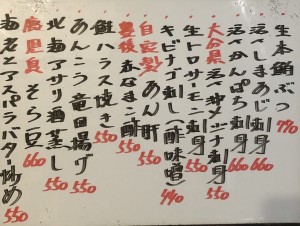 生本鮪ぶつ 770
活〆しまあじ刺身 660
活〆かんぱち刺身 660
大分県 活〆沖メジナ刺身 550
生トロサーモン刺身 550
キビナゴ刺し(酢味噌) 440
自家製 あん肝 550
豊後 赤なまこ酢 550
鮭ハラス焼き 550
あんこう竜田揚げ 550
北海アサリ酒蒸し 550
鹿児島 そら豆 660
海老とアスパラバター炒め 550